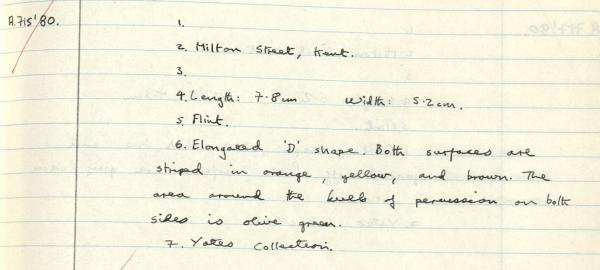 A.715'80.
1.
2. Milton Street, Kent.
3.
4. Length: 7.8cm Width: 5.2cm.
5. Flint.
6. Elongated 'D' shape. Both surfaces are
striped in orange, yellow, and brown. The
area around the bulb of percussion on both
sides is olive green.
7. Yates Collection.